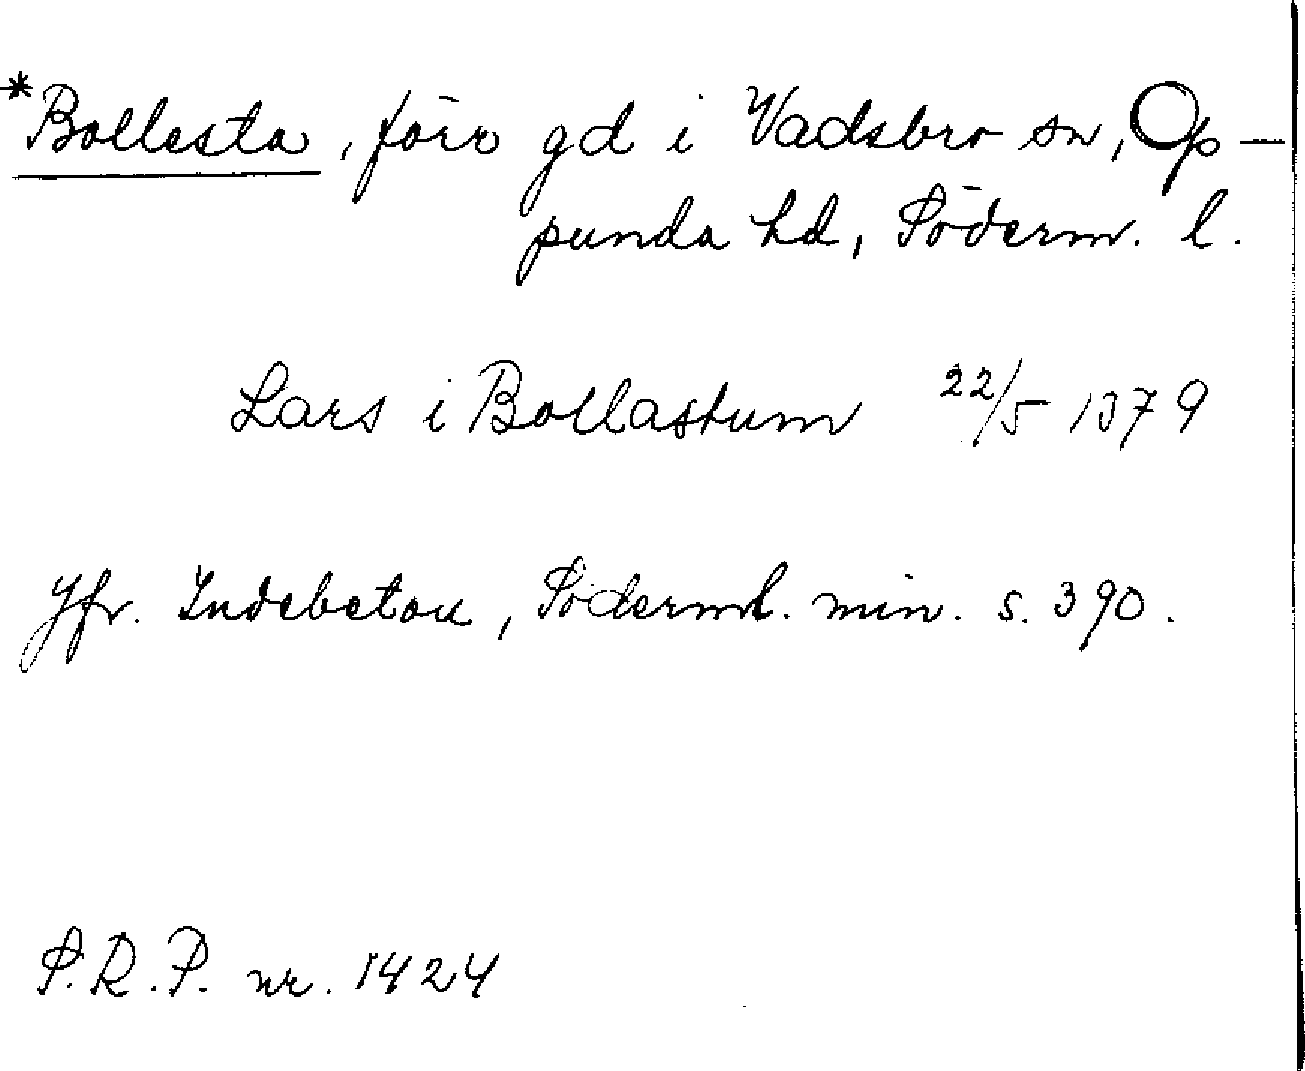 *Bollesta, förr gd i Vadsbro sn, Op-
punda hd, Söderm. l.
Lars i Bollastum 22/5 1379
Jfr. Indebetou, Söderml. min. s. 390.
S.R.P. nr. 1424